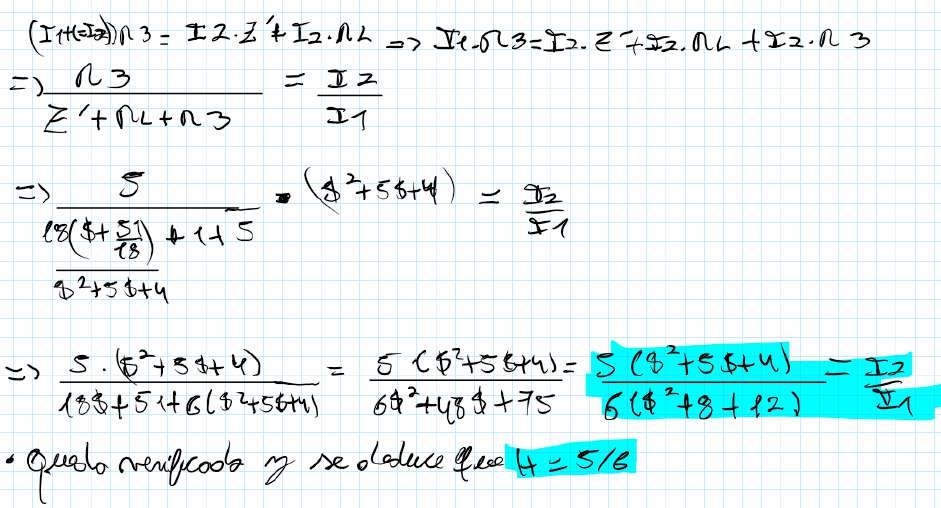 (I1+(-I2))R3 = I2.Z'+I2.RL => I1.R3=I2.Z'+I2.RL+I2.R3
=> R3/(Z'+RL+R3) = I2/I1
=> 5/(18($+51/18)/($²+5$+4) + 1+5) . ($²+5$+4) = I2/I1
=> 5.($²+5$+4)/(18$+51+6($²+5$+4)) = 5($²+5$+4)/(6$²+48$+75) = 5($²+5$+4)/(6($²+8+12)) = I2/I1
• Queda verificado y se deduce que H = 5/6